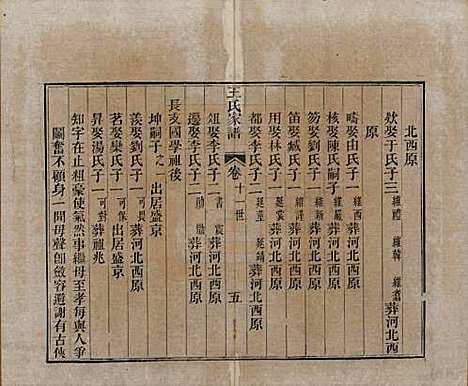 北西原
欵娶于氏子三 維禮 維韓 維翥 葬河北西
原
疇娶由氏子一 維酉 葬河北西原
核娶陳氏嗣子 維嚴 葬河北西原
笏娶劉氏子一 維新 葬河北西原
笛娶臧氏子一 維謹 葬河北西原
用娶林氏子一 延棠 葬河北西原
都娶李氏子二 延堇 延靖 葬河北西原
王氏家譜
卷 十一世
五
俎娶李氏子二 書 震 葬河北西原
邊娶李氏子二 勛 勵 葬河北西原
長支國學祖後
坤嗣子之一 出居盛京
羨娶劉氏子一 可畏 葬河北西原
茗娶欒氏子一 可保 出居盛京
昇娶湯氏子一 可對 葬祖兆
知字在止粗豪使氣然事繼母至孝每與人爭
鬭奮不顧身一聞母聲卽斂容避謝有古俠